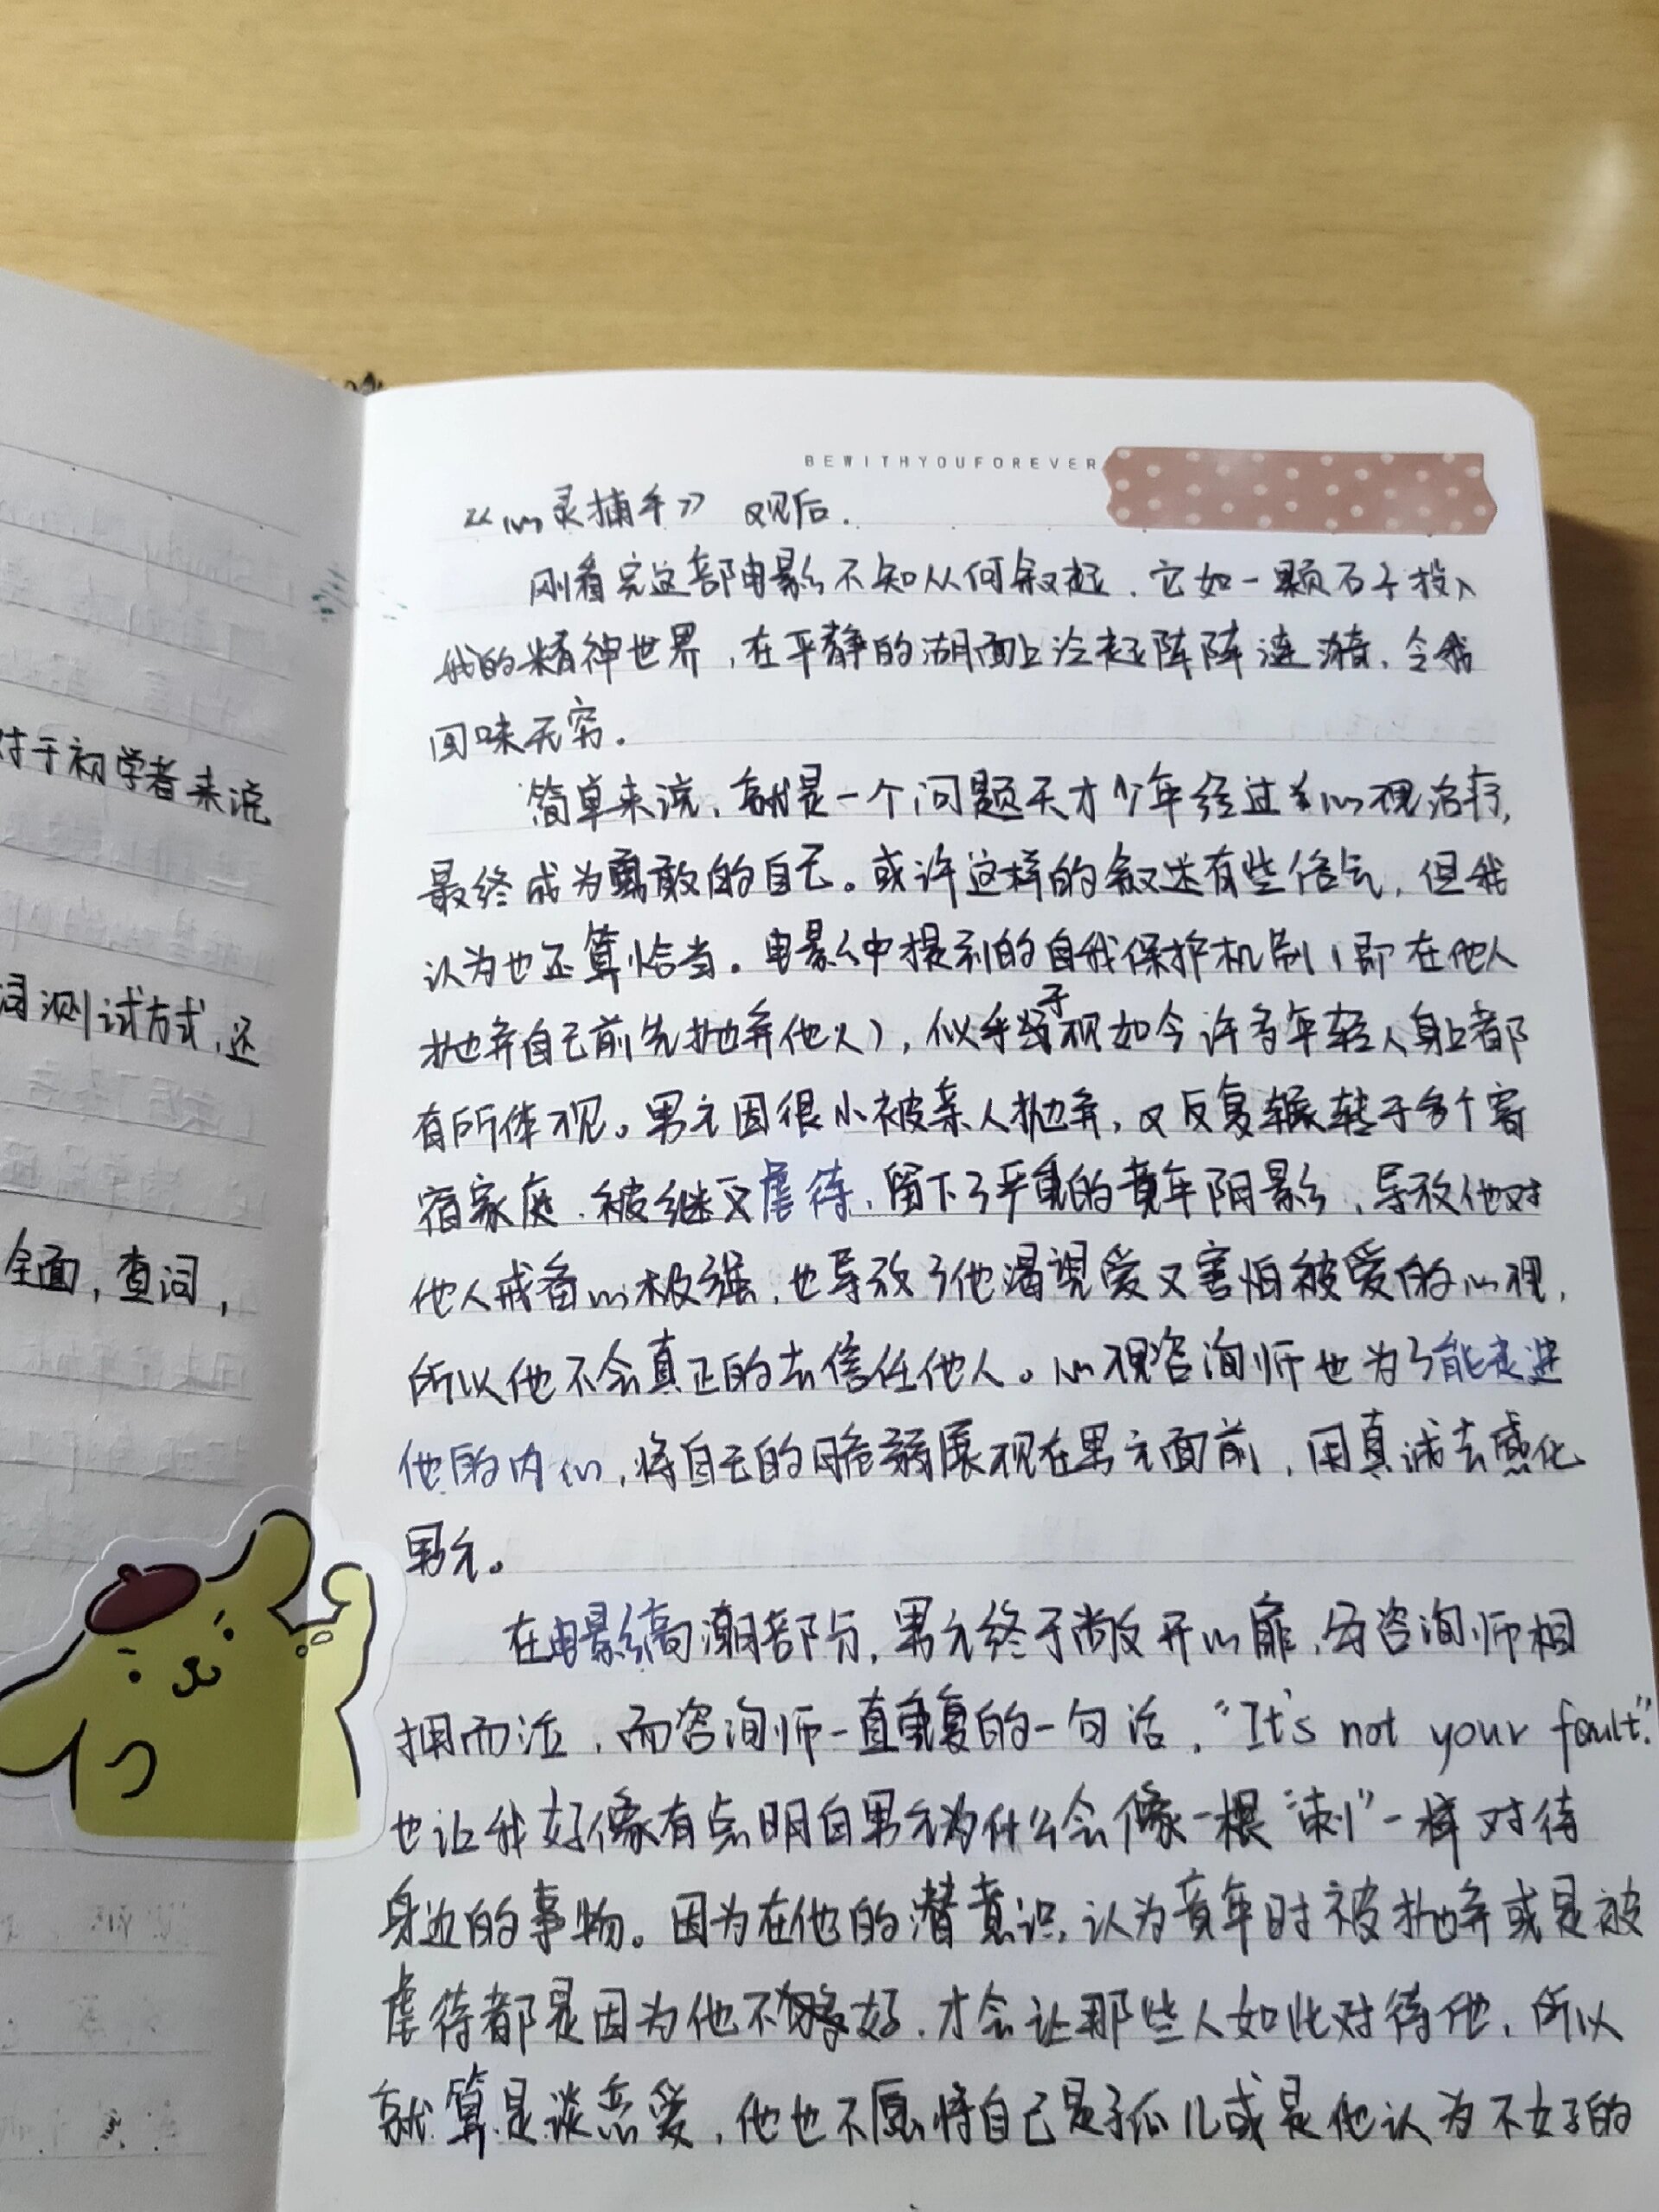 BEWITHYOUFOREVER
《心灵捕手》 观后.
刚看完这部电影不知从何叙起，它如一颗石子投入
我的精神世界，在平静的湖面上泛起阵阵涟漪，令我
回味无穷.
简单来说，就是一个问题天才少年经过心理治疗，
最终成为勇敢的自己。或许这样的叙述有些俗气，但我
认为也还算恰当。电影中提到的自我保护机制（即在他人
抛弃自己前先抛弃他人），似乎于现如今许多年轻人身上都
有所体现。男主因很小被亲人抛弃，又反复辗转于多个寄
宿家庭，被继父虐待，留下了严重的童年阴影，导致他对
他人戒备心极强，也导致了他渴望爱又害怕被爱的心理，
所以他不会真正的去信任他人。心理咨询师也为了能走进
他的内心，将自己的脆弱展现在男主面前，用真诚去感化
男主。
在电影高潮部分，男主终于敞开心扉，与咨询师相
拥而泣，而咨询师一直重复的一句话，"It's not your fault."
也让我好像有点明白男主为什么会像一根"刺"一样对待
身边的事物。因为在他的潜意识，认为童年时被抛弃或是被
虐待都是因为他不够好，才会让那些人如此对待他，所以
就算是谈恋爱，他也不愿将自己是孤儿或是他认为不好的
对于初学者来说
词测试方式，还
全面，查词，